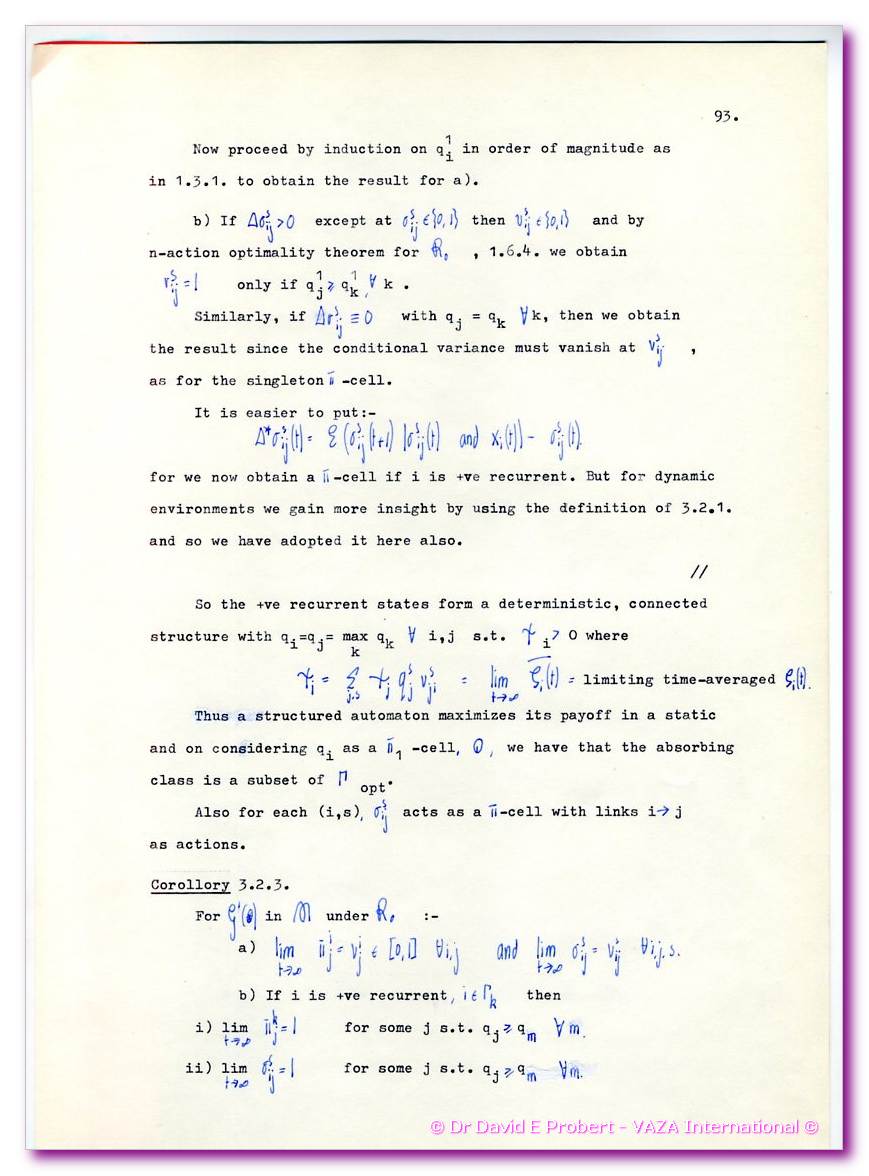 93.
Now proceed by induction on q_i^1 in order of magnitude as
in 1.3.1. to obtain the result for a).
b) If Δσ_ij^s > 0 except at σ_ij^s ∈ {0,1} then v_ij^s ∈ {0,1} and by
n-action optimality theorem for R_0 , 1.6.4. we obtain
v_ij^s = 1 only if q_j^1 ⩾ q_k^1, ∀ k .
Similarly, if Δσ_ij^s ≡ 0 with q_j = q_k ∀ k, then we obtain
the result since the conditional variance must vanish at v_ij^s ,
as for the singleton π̄ -cell.
It is easier to put:-
Δ*σ_ij^s(t) = ℰ (σ_ij^s(t+1) | σ_ij^s(t) and x_i(t)) - σ_ij^s(t).
for we now obtain a π̄ -cell if i is +ve recurrent. But for dynamic
environments we gain more insight by using the definition of 3.2.1.
and so we have adopted it here also.
//
So the +ve recurrent states form a deterministic, connected
structure with q_i=q_j= max_k q_k ∀ i,j s.t. γ_i > 0 where
γ_i = Σ_j,s γ_j q_j^s v_ji^s = lim_t→∞ ξ_i(t) = limiting time-averaged ξ_i(t).
Thus a structured automaton maximizes its payoff in a static
and on considering q_i as a π̄_1 -cell, Q, we have that the absorbing
class is a subset of Γ_opt.
Also for each (i,s), σ_ij^s acts as a π̄-cell with links i→ j
as actions.
Corollory 3.2.3.
For in M under R_0 :-
a) lim_t→∞ π̄_j^i = v_j^i ∈ [0,1] ∀i,j and lim_t→∞ σ_ij^s = v_ij^s ∀i,j,s.
b) If i is +ve recurrent, i ∈ Γ_k then
i) lim_t→∞ π̄_j^k = 1 for some j s.t. q_j ⩾ q_m ∀ m.
ii) lim_t→∞ σ_ij^s = 1 for some j s.t. q_j ⩾ q_m ∀m.
© Dr David E Probert - VAZA International ©